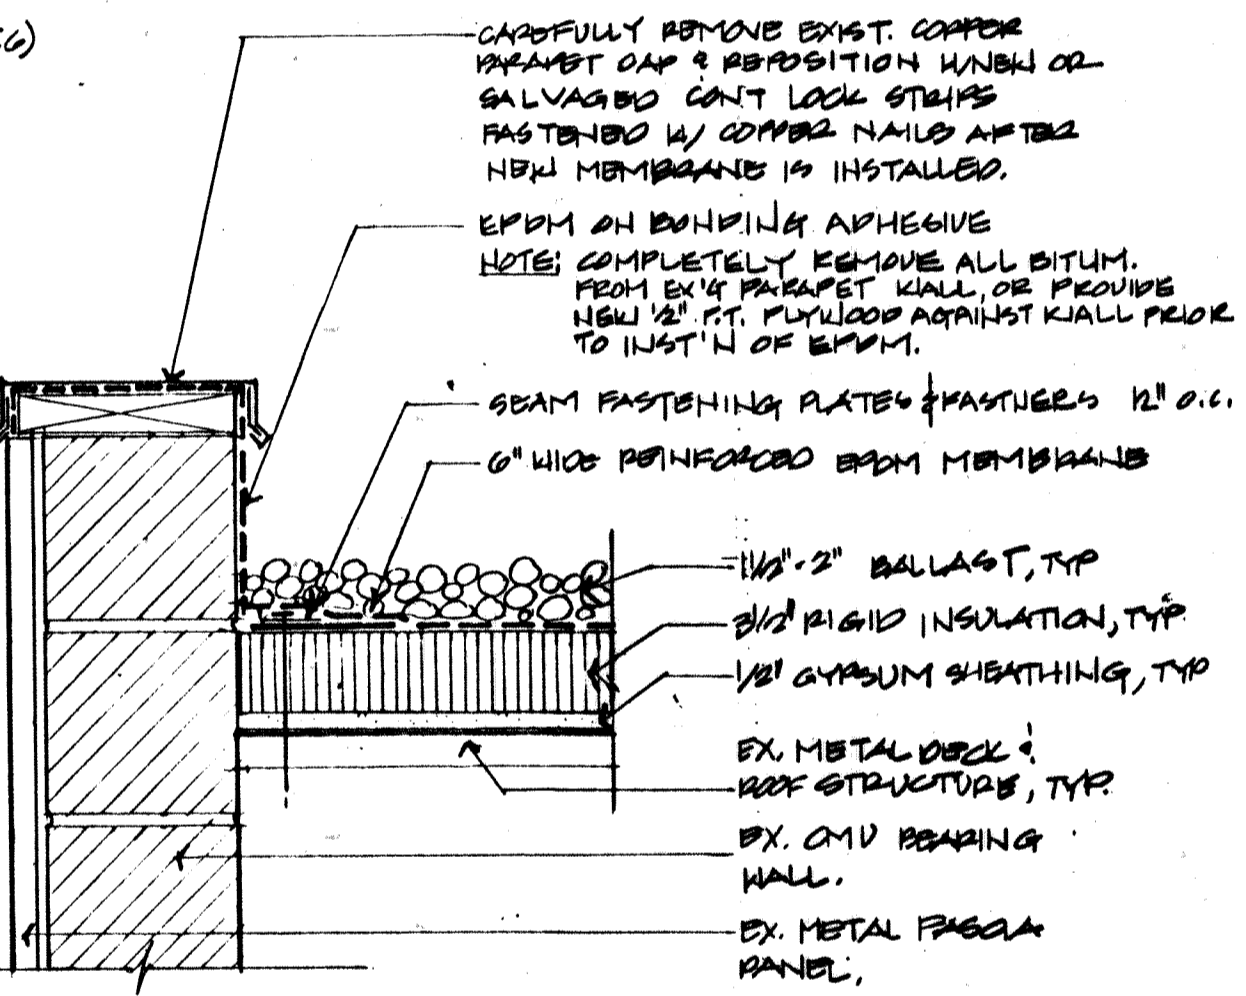 6)
CAREFULLY REMOVE EXIST. COPPER
PARAPET CAP & REPOSITION W/NEW OR
SALVAGED CON'T LOCK STRIPS
FASTENED W/ COPPER NAILS AFTER
NEW MEMBRANE IS INSTALLED.
EPDM ON BONDING ADHESIVE
NOTE: COMPLETELY REMOVE ALL BITUM.
FROM EX'G PARAPET WALL, OR PROVIDE
NEW 1/2" P.T. PLYWOOD AGAINST WALL PRIOR
TO INST'N OF EPDM.
SEAM FASTENING PLATES & FASTNERS 12" O.C.
6" WIDE REINFORCED EPDM MEMBRANE
1 1/2"-2" BALLAST, TYP
3 1/2" RIGID INSULATION, TYP.
1/2" GYPSUM SHEATHING, TYP
EX. METAL DECK &
ROOF STRUCTURE, TYP.
EX. CMU BEARING
WALL.
EX. METAL FASCIA
PANEL.